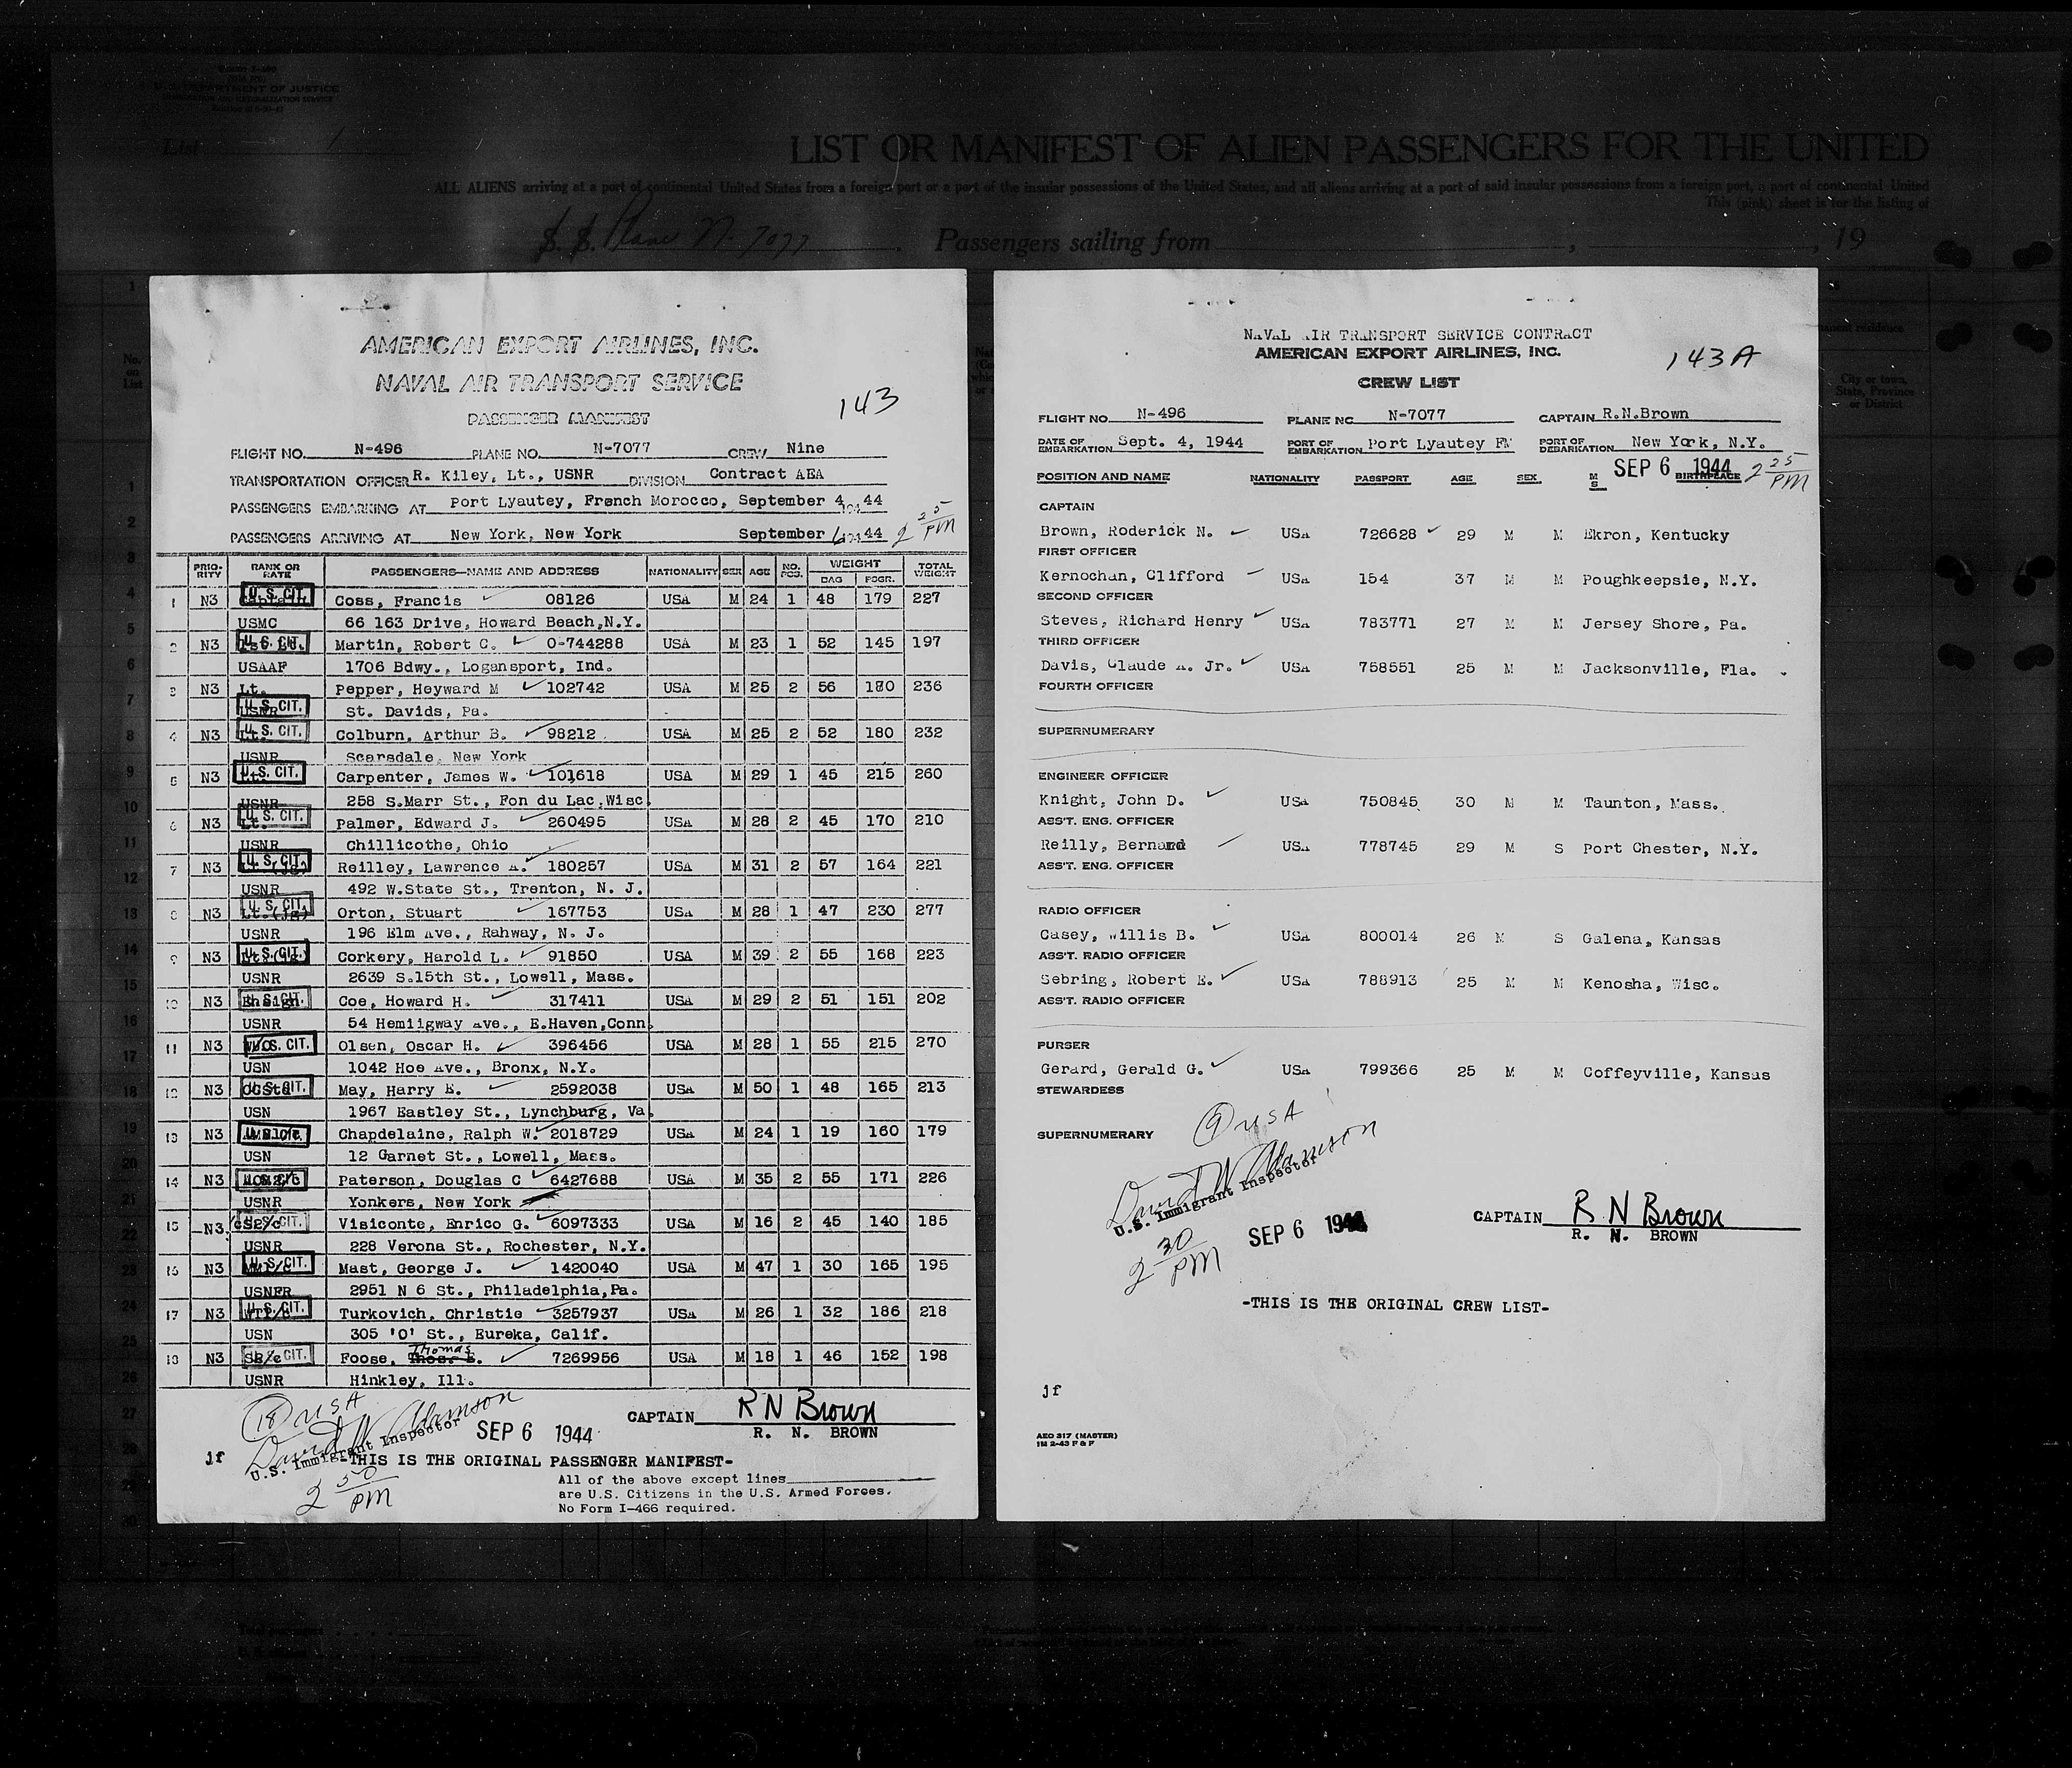 U. S. DEPARTMENT OF JUSTICE
List 1
LIST OR MANIFEST OF ALIEN PASSENGERS FOR THE UNITED
ALL ALIENS arriving at a port of continental United States from a foreign port or a port of the insular possessions of the United States, and all aliens arriving at a port of said insular possessions from a foreign port, a port of continental United
This (pink) sheet is for the listing of
S. S. Plane N. 7077 Passengers sailing from , , 19
AMERICAN EXPORT AIRLINES, INC.
NAVAL AIR TRANSPORT SERVICE
143
PASSENGER MANIFEST
FLIGHT NO. N-496 PLANE NO. N-7077 CREW Nine
TRANSPORTATION OFFICER R. Kiley, Lt., USNR DIVISION Contract AEA
PASSENGERS EMBARKING AT Port Lyautey, French Morocco, September 4, 194 44
PASSENGERS ARRIVING AT New York, New York September 6 194 44 2 25 PM
PRIORITY RANK OR RATE PASSENGERS—NAME AND ADDRESS NATIONALITY SEX AGE NO. PCS. WEIGHT BAG PSGR. TOTAL WEIGHT
1 N3 U. S. CIT. Coss, Francis 08126 USA M 24 1 48 179 227
USMC 66 163 Drive, Howard Beach,N.Y.
2 N3 U. S. CIT. Martin, Robert C. 0-744288 USA M 23 1 52 145 197
USAAF 1706 Bdwy., Logansport, Ind.
3 N3 Lt. Pepper, Heyward M 102742 USA M 25 2 56 180 236
USNR U. S. CIT. St. Davids, Pa.
4 N3 Lt. U. S. CIT. Colburn, Arthur B. 98212 USA M 25 2 52 180 232
USNR Scarsdale, New York
5 N3 U. S. CIT. Carpenter, James W. 101618 USA M 29 1 45 215 260
USNR 258 S.Marr St., Fon du Lac,Wisc.
6 N3 Lt. U. S. CIT. Palmer, Edward J. 260495 USA M 28 2 45 170 210
USNR Chillicothe, Ohio
7 N3 U. S. CIT. Reilley, Lawrence A. 180257 USA M 31 2 57 164 221
USNR 492 W.State St., Trenton, N. J.
8 N3 Lt.(jg) U. S. CIT. Orton, Stuart 167753 USA M 28 1 47 230 277
USNR 196 Elm Ave., Rahway, N. J.
9 N3 U. S. CIT. Corkery, Harold L. 91850 USA M 39 2 55 168 223
USNR 2639 S.15th St., Lowell, Mass.
10 N3 Ensign U. S. CIT. Coe, Howard H. 317411 USA M 29 2 51 151 202
USNR 54 Hemiigway Ave., E.Haven,Conn.
11 N3 U. S. CIT. Olsen, Oscar H. 396456 USA M 28 1 55 215 270
USN 1042 Hoe Ave., Bronx, N.Y.
12 N3 U. S. CIT. May, Harry E. 2592038 USA M 50 1 48 165 213
USN 1967 Eastley St., Lynchburg, Va.
13 N3 Chapdelaine, Ralph W. 2018729 USA M 24 1 19 160 179
USN 12 Garnet St., Lowell, Mass.
14 N3 Paterson, Douglas C 6427688 USA M 35 2 55 171 226
USNR Yonkers, New York
15 N3 U. S. CIT. Visiconte, Enrico G. 6097333 USA M 16 2 45 140 185
USNR 228 Verona St., Rochester, N.Y.
16 N3 U. S. CIT. Mast, George J. 1420040 USA M 47 1 30 165 195
USNFR 2951 N 6 St., Philadelphia,Pa.
17 N3 U. S. CIT. Turkovich, Christie 3257937 USA M 26 1 32 186 218
USN 305 'O' St., Eureka, Calif.
18 N3 U. S. CIT. Foose, Thos. E. Thomas 7269956 USA M 18 1 46 152 198
USNR Hinkley, Ill.
18 USA
David W Adamson
U.S. Immigrant Inspector
SEP 6 1944
CAPTAIN R N Brown
R. N. BROWN
jf
-THIS IS THE ORIGINAL PASSENGER MANIFEST-
2 50 PM
All of the above except lines
are U.S. Citizens in the U.S. Armed Forces.
No Form I-466 required.
NAVAL AIR TRANSPORT SERVICE CONTRACT
AMERICAN EXPORT AIRLINES, INC.
143 A
CREW LIST
FLIGHT NO. N-496 PLANE NO. N-7077 CAPTAIN R.N.Brown
DATE OF EMBARKATION Sept. 4, 1944 PORT OF EMBARKATION Port Lyautey FM PORT OF DEBARKATION New York, N.Y.
SEP 6 1944 2 25 PM
POSITION AND NAME NATIONALITY PASSPORT AGE SEX M S BIRTHPLACE
CAPTAIN
Brown, Roderick N. USA 726628 29 M M Ekron, Kentucky
FIRST OFFICER
Kernochan, Clifford USA 154 37 M M Poughkeepsie, N.Y.
SECOND OFFICER
Steves, Richard Henry USA 783771 27 M M Jersey Shore, Pa.
THIRD OFFICER
Davis, Claude A. Jr. USA 758551 25 M M Jacksonville, Fla.
FOURTH OFFICER
SUPERNUMERARY
ENGINEER OFFICER
Knight, John D. USA 750845 30 M M Taunton, Mass.
ASS'T. ENG. OFFICER
Reilly, Bernard USA 778745 29 M S Port Chester, N.Y.
ASS'T. ENG. OFFICER
RADIO OFFICER
Casey, Willis B. USA 800014 26 M S Galena, Kansas
ASS'T. RADIO OFFICER
Sebring, Robert E. USA 788913 25 M M Kenosha, Wisc.
ASS'T. RADIO OFFICER
PURSER
Gerard, Gerald G. USA 799366 25 M M Coffeyville, Kansas
STEWARDESS
9 USA
SUPERNUMERARY
David W Adamson
U.S. Immigrant Inspector
SEP 6 1944
2 30 PM
CAPTAIN R N Brown
R. N. BROWN
-THIS IS THE ORIGINAL CREW LIST-
jf
AEO 317 (MASTER)
1M 2-43 F & F